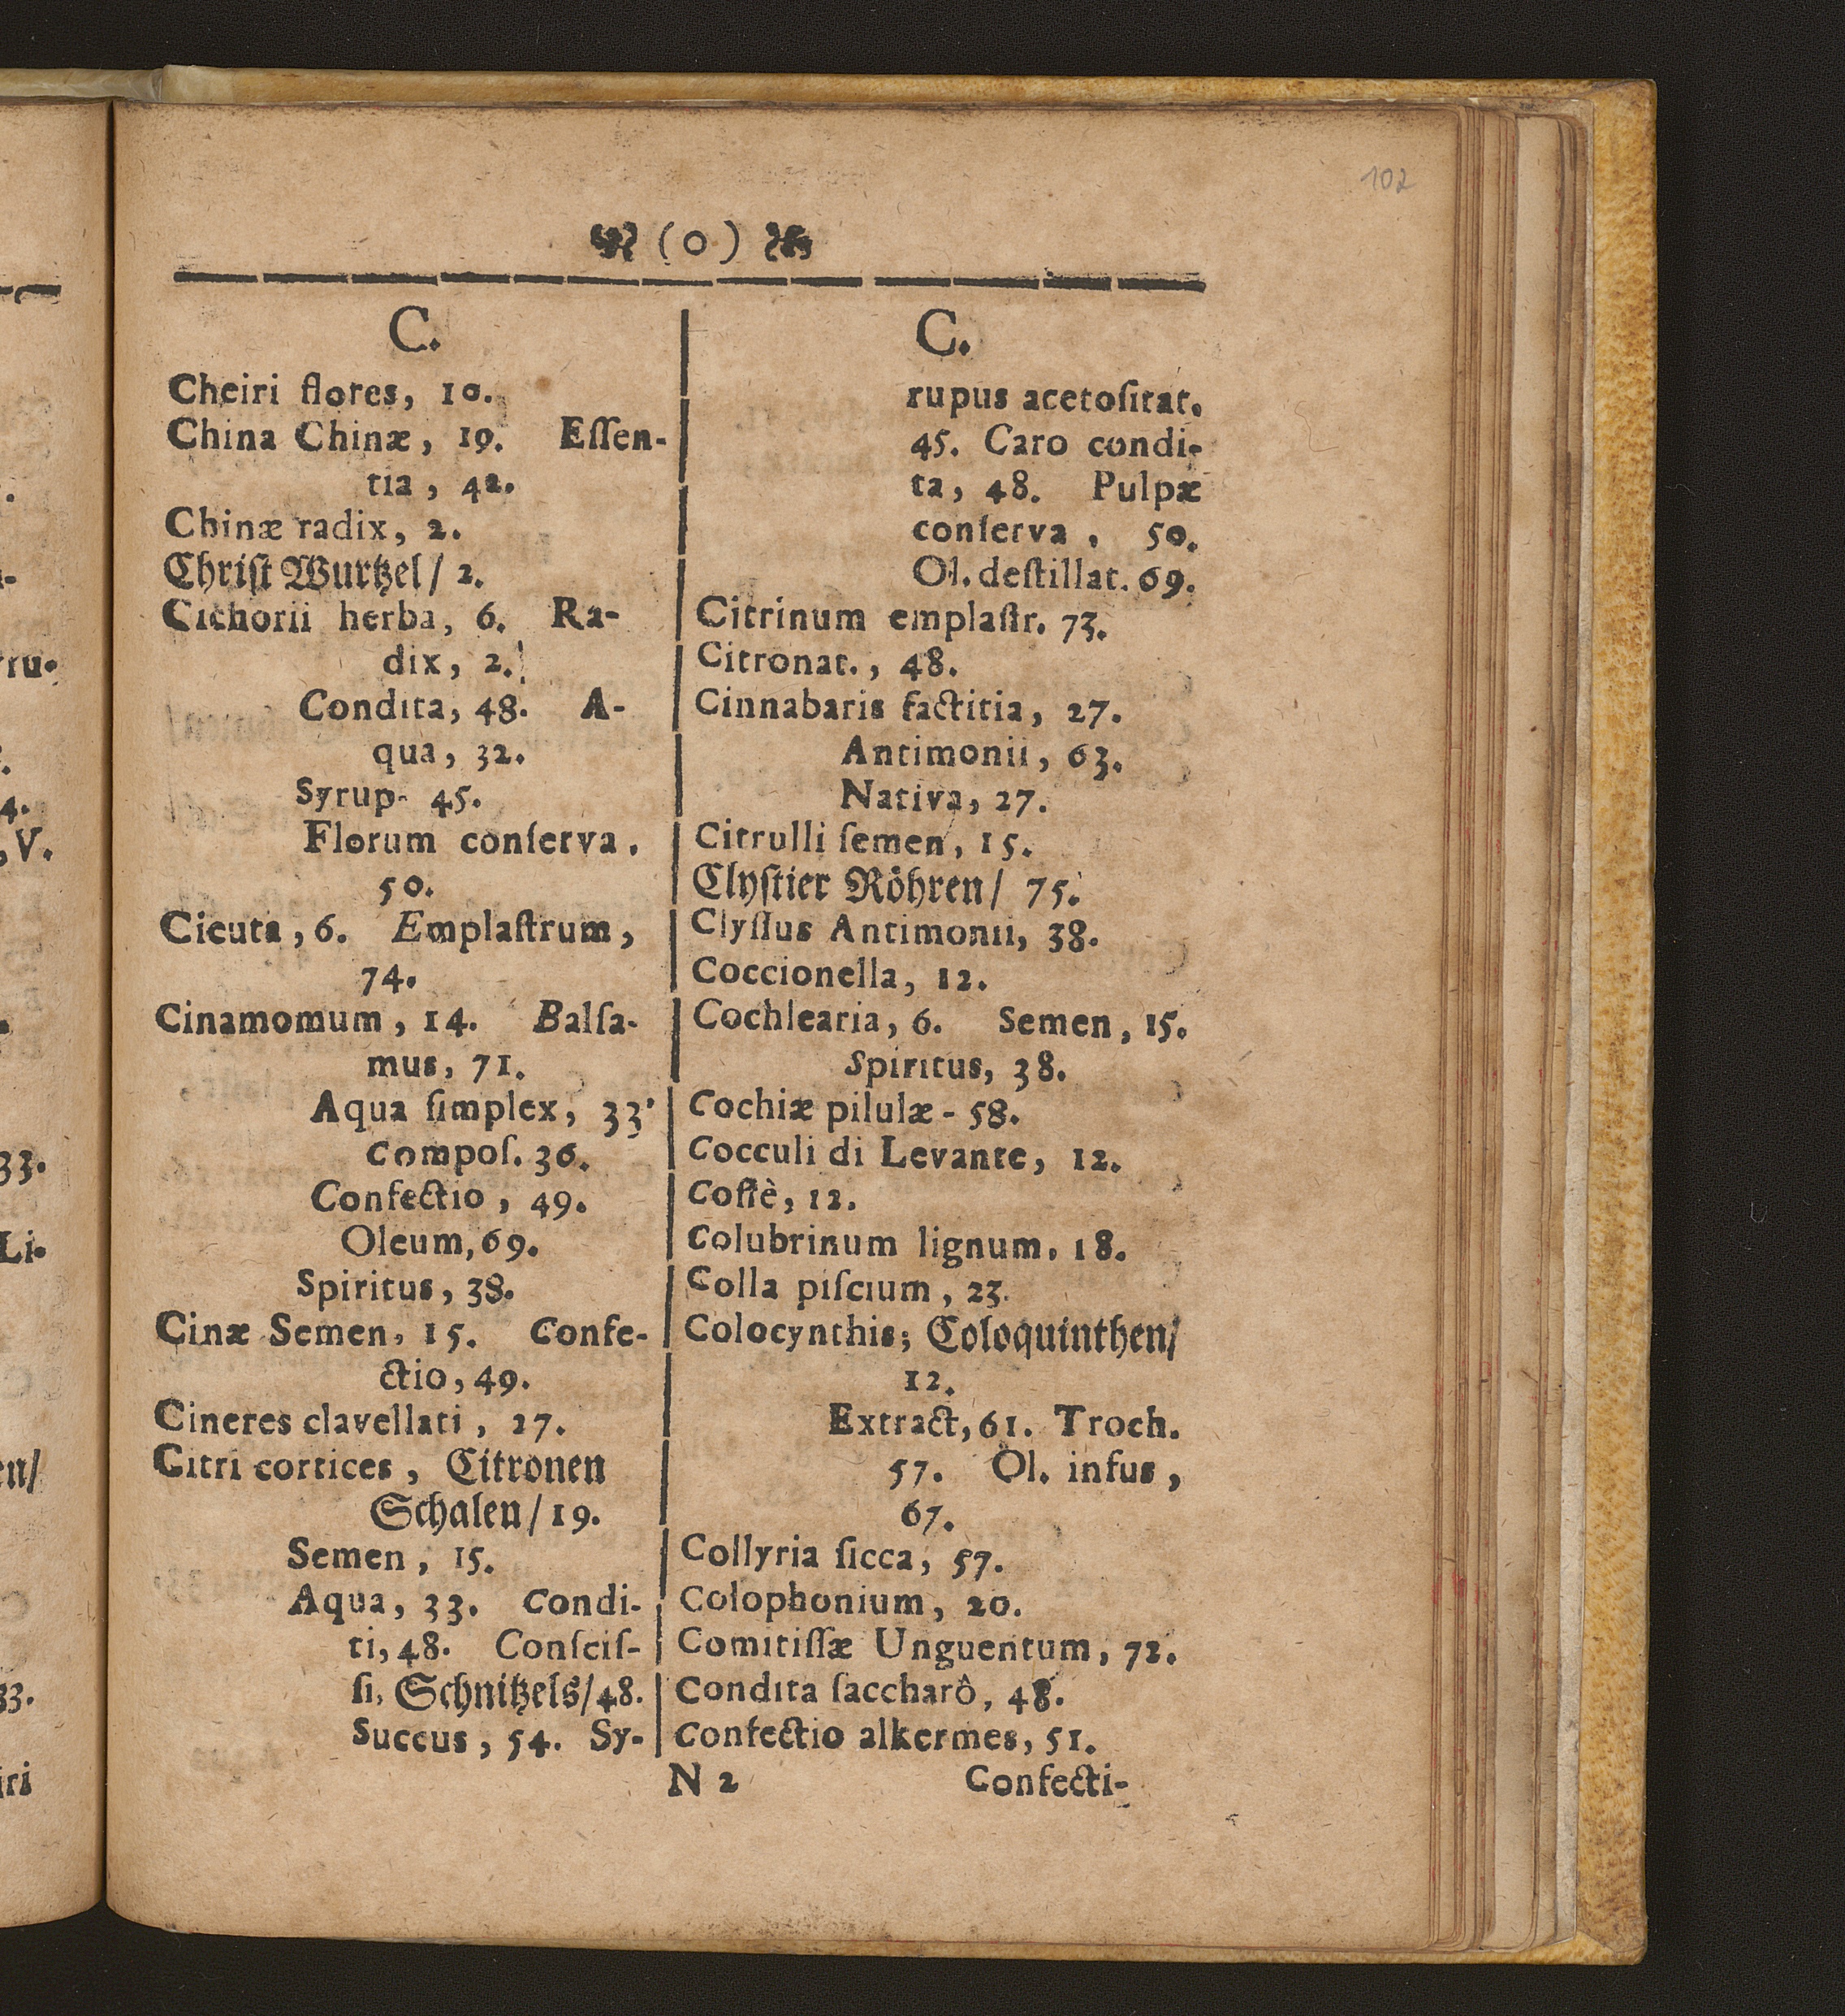 102
(o)
C.
Cheiri flores, 10.
China Chinæ, 19. Eſſen-
tia, 42.
Chinæ radix, 2.
Chriſt Wurtzel/ 2.
Cichorii herba, 6. Ra-
dix, 2.
Condita, 48. A-
qua, 32.
Syrup- 45.
Florum conſerva,
50.
Cicuta, 6. Emplaſtrum,
74.
Cinamomum, 14. Balſa-
mus, 71.
Aqua ſimplex, 33'
Compoſ. 36.
Confectio, 49.
Oleum, 69.
Spiritus, 38.
Cinæ Semen, 15. Confe-
ctio, 49.
Cineres clavellati, 27.
Citri cortices, Citronen
Schalen/ 19.
Semen, 15.
Aqua, 33. Condi-
ti, 48. Conſciſ-
ſi, Schnitzels/ 48.
Succus, 54. Sy-
C.
rupus acetoſitat.
45. Caro condi-
ta, 48. Pulpæ
conſerva, 50.
Ol. deſtillat. 69.
Citrinum emplaſtr. 73.
Citronat., 48.
Cinnabaris factitia, 27.
Antimonii, 63.
Nativa, 27.
Citrulli ſemen, 15.
Clyſtier Röhren/ 75.
Clyſſus Antimonii, 38.
Coccionella, 12.
Cochlearia, 6. Semen, 15.
Spiritus, 38.
Cochiæ pilulæ - 58.
Cocculi di Levante, 12.
Coffè, 12.
Colubrinum lignum, 18.
Colla piſcium, 23.
Colocynthis; Coloquinthen/
12.
Extract, 61. Troch.
57. Öl. infus,
67.
Collyria ſicca, 57.
Colophonium, 20.
Comitiſſæ Unguentum, 72.
Condita ſaccharô, 48.
Confectio alkermes, 51.
N 2
Confecti-